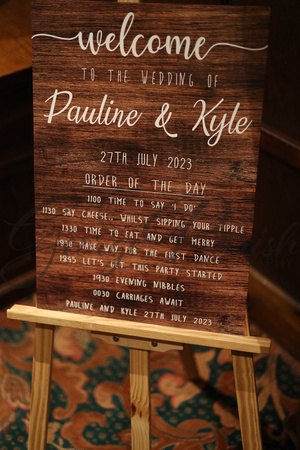 welcome
TO THE WEDDING OF
Pauline & Kyle
27TH JULY 2023
ORDER OF THE DAY
1100 TIME TO SAY 'I DO'
1130 SAY CHEESE.. WHILST SIPPING YOUR TIPPLE
1330 TIME TO EAT AND GET MERRY
1830 MAKE WAY FOR THE FIRST DANCE
1845 LET'S GET THIS PARTY STARTED
1930 EVENING NIBBLES
0030 CARRIAGES AWAIT
PAULINE AND KYLE 27TH JULY 2023